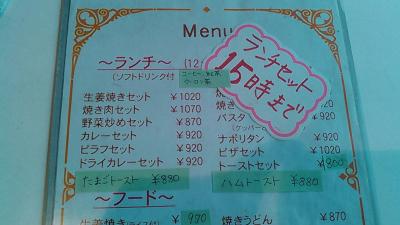 Menu
～ランチ～ (12
(ソフトドリンク付
ランチセット
15時まで
生姜焼きセット ¥1020
焼き肉セット ¥1070
野菜炒めセット ¥870
カレーセット ¥920
ピラフセット ¥920
ドライカレーセット ¥920
たまごトースト ¥880
焼き
パスタ
920
ナポリタン ¥920
ピザセット ¥1020
トーストセット ¥800
ハムトースト ¥880
～フード～
生姜焼き(ライス付) ¥970
焼きうどん ¥870